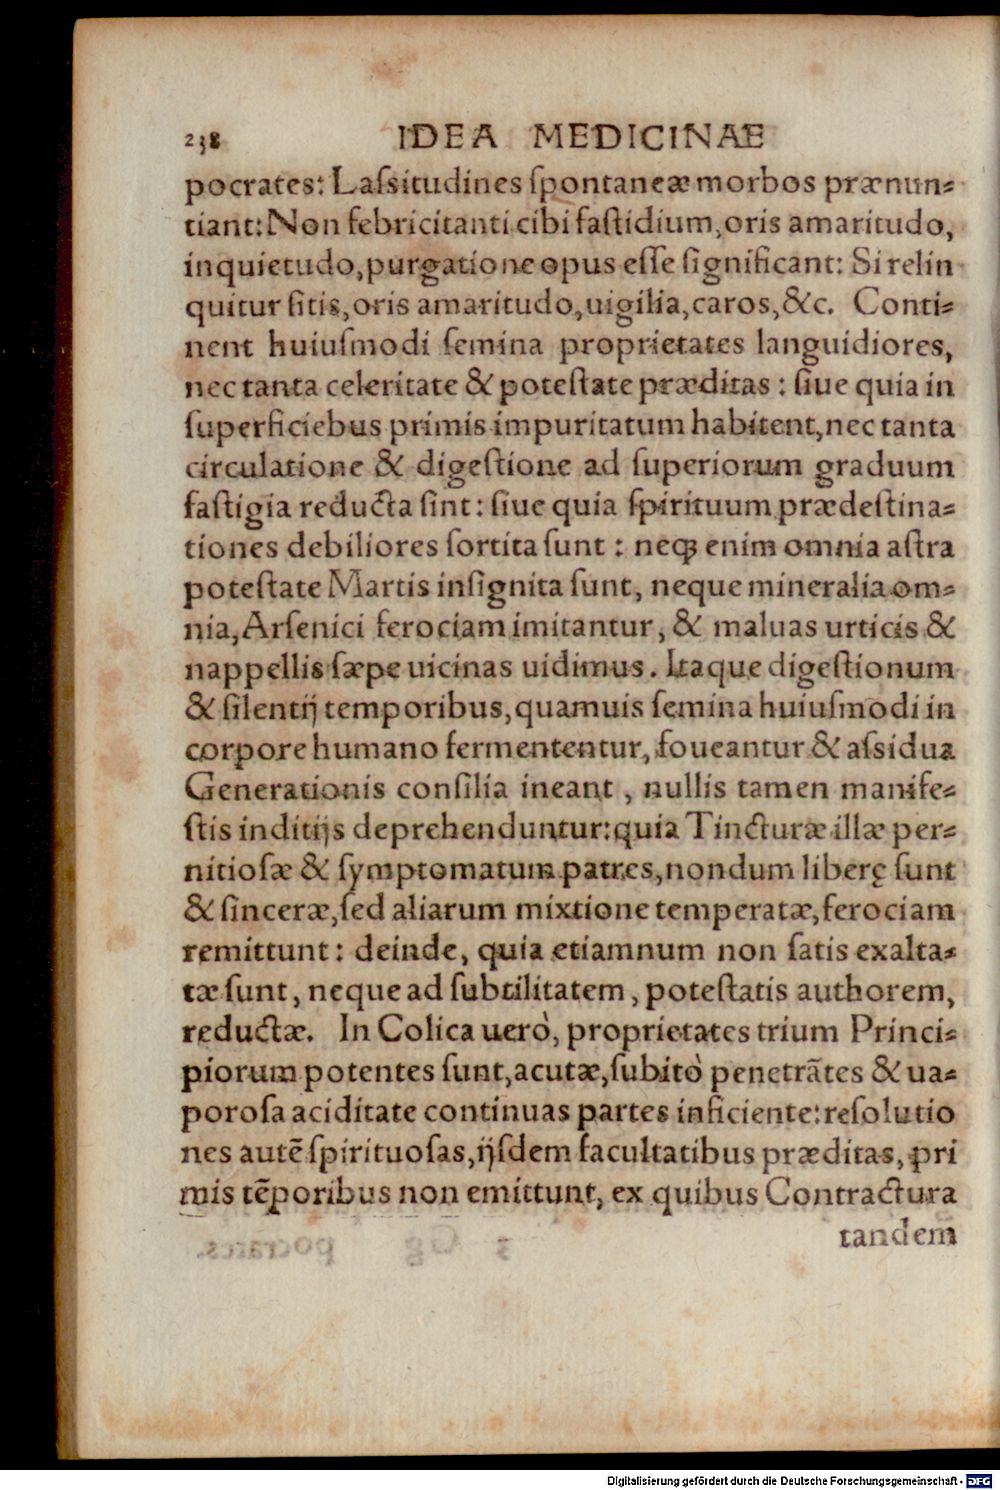 238 IDEA MEDICINAE
pocrates: Lassitudines ſpontaneæ morbos prænun-
tiant: Non febricitanti cibi faſtidium, oris amaritudo,
inquietudo, purgatione opus eſſe ſignificant: Si relin
quitur ſitis, oris amaritudo, uigilia, caros, &c. Conti-
nent huiuſmodi ſemina proprietates languidiores,
nec tanta celeritate & poteſtate præditas: ſiue quia in
ſuperficiebus primis impuritatum habitent, nec tanta
circulatione & digeſtione ad ſuperiorum graduum
faſtigia reducta ſint: ſiue quia ſpirituum prædeſtina-
tiones debiliores ſortita ſunt: neqꝫ enim omnia aſtra
poteſtate Martis inſignita ſunt, neque mineralia om-
nia, Arſenici ferociam imitantur, & maluas urticis &
nappellis ſæpe uicinas uidimus. Itaque digeſtionum
& ſilentij temporibus, quamuis ſemina huiuſmodi in
corpore humano fermententur, foueantur & aſsidua
Generationis conſilia ineant, nullis tamen manife-
ſtis inditijs deprehenduntur: quia Tincturæ illæ per-
nitioſæ & ſymptomatum patres, nondum liberę ſunt
& ſinceræ, ſed aliarum mixtione temperatæ, ferociam
remittunt: deinde, quia etiamnum non ſatis exalta-
tæ ſunt, neque ad ſubtilitatem, poteſtatis authorem,
reductæ. In Colica uerò, proprietates trium Princi-
piorum potentes ſunt, acutæ, ſubitò penetrātes & ua-
poroſa aciditate continuas partes inficiente: reſolutio
nes autē ſpirituoſas, ijſdem facultatibus præditas, pri
mis tēporibus non emittunt, ex quibus Contractura
tandem
Digitalisierung gefördert durch die Deutsche Forschungsgemeinschaft - DFG